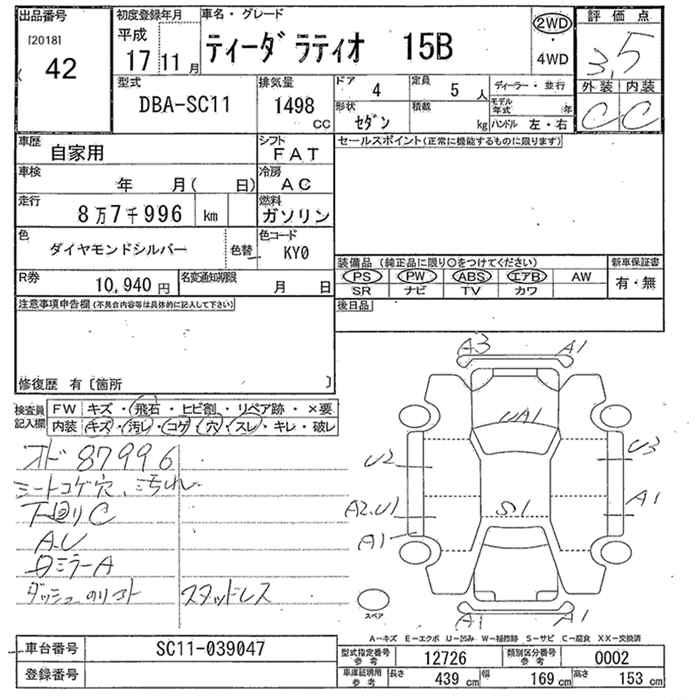 出品番号 初度登録年月 車名・グレード 2WD 評価点
[2018] 42 平成 17 11月 ティーダ ラティオ 15B 4WD 3.5
型式 排気量 ドア 4 定員 5人 ディーラー・並行 外装 内装
DBA-SC11 1498 cc 形状 セダン 積載 kg モデル年式 年 ハンドル 左・右 C C
車歴 自家用 シフト FAT セールスポイント(正常に機能するものに限ります)
車検 年 月( 日) 冷房 AC
走行 8万7千996 km 燃料 ガソリン
色 ダイヤモンドシルバー 色替 色コード KY0
装備品(純正品に限り○をつけてください) 新車保証書
R券 10,940円 名変通知期限 月 日 PS PW ABS エアB AW 有・無
SR ナビ TV カワ
注意事項申告欄(不具合内容等は具体的に記入して下さい) 後日品
修復歴 有〔箇所 〕
検査員記入欄 FW キズ・飛石・ヒビ割・リペア跡・×要
内装 キズ・汚レ・コゲ・穴・スレ・キレ・破レ
オド 87996
シートコゲ穴、汚れ
下回りC
A.U
ロミラーA
ダッシュのリコト スタッドレス
A3 A1
UA1
U2 U3
A2.U1 S1 A1
A1
A1 A1
スペア
A−キズ E−エクボ U−凹み W−補修跡 S−サビ C−腐食 XX−交換済
車台番号 SC11-039047 型式指定番号 参考 12726 類別区分番号 参考 0002
登録番号 車庫証明用 参考 長さ 439 cm 幅 169 cm 高さ 153 cm